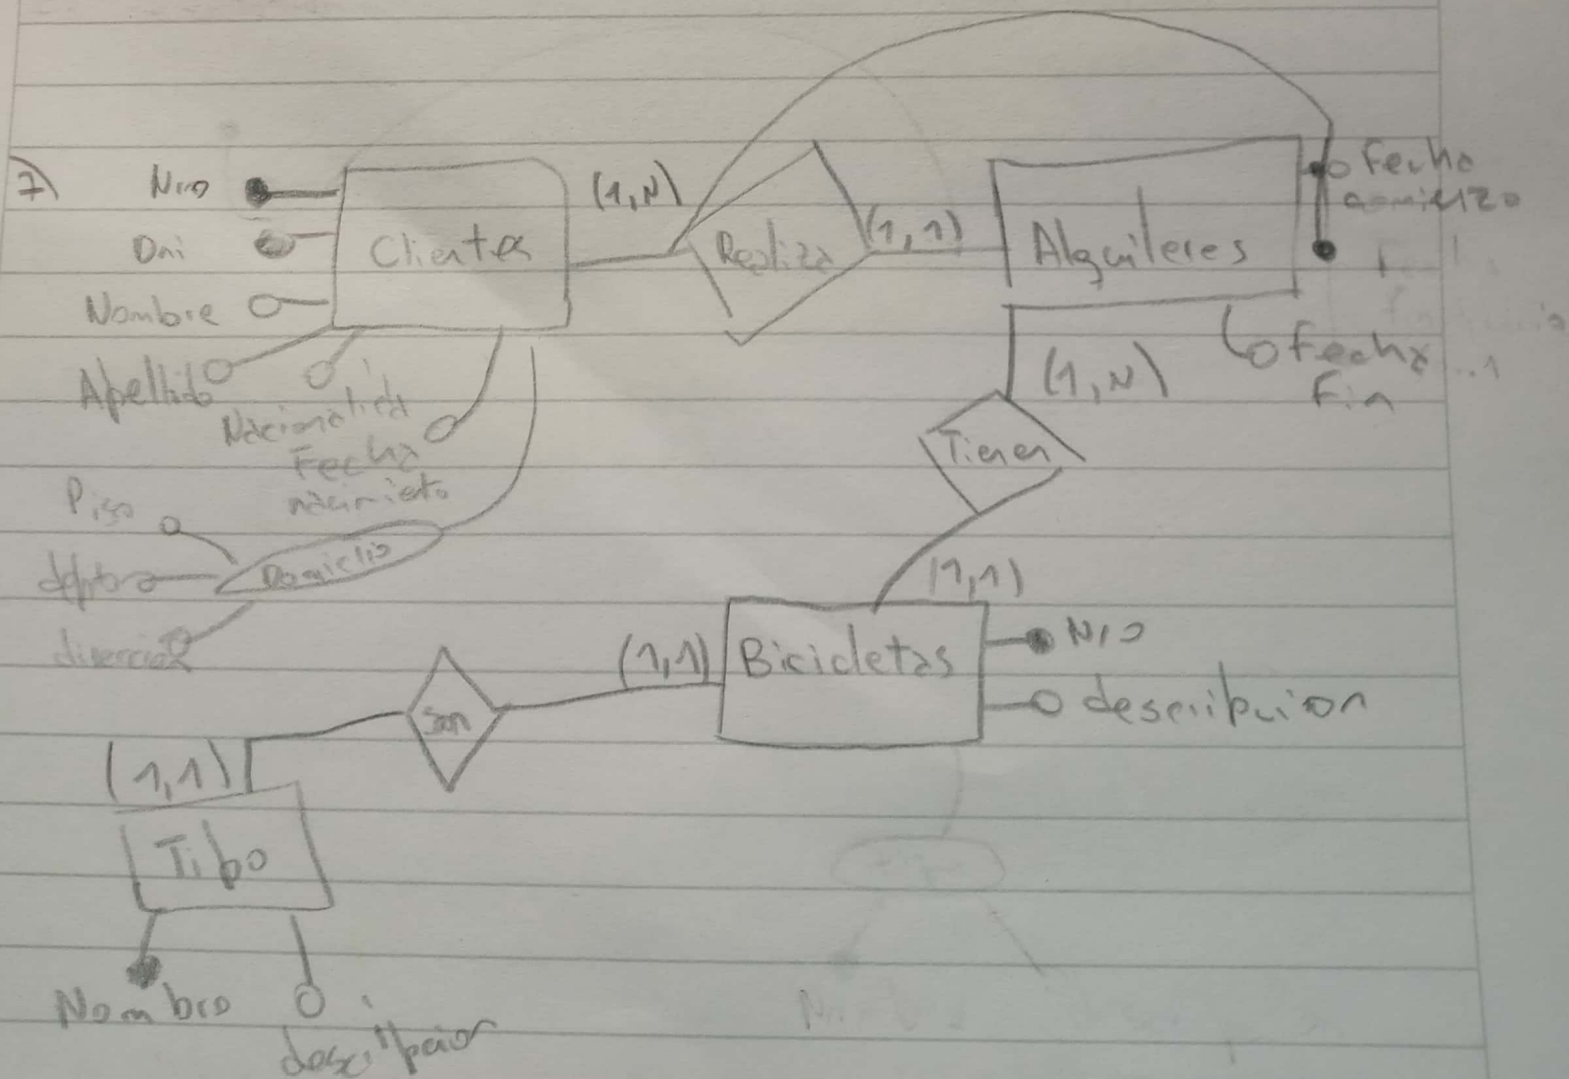 7)
Nro
Dni
Nombre
Apellido
Nacionalida
Fecha
nacimiento
Piso
depto
direccion
Domiclio
Clientes
(1,N)
Realiza
(1,1)
Alquileres
Fecha
comienzo
Fecha
Fin
(1,N)
Tienen
(1,1)
Bicicletas
Nro
descripcion
(1,1)
Son
(1,1)
Tipo
Nombre
descripcion